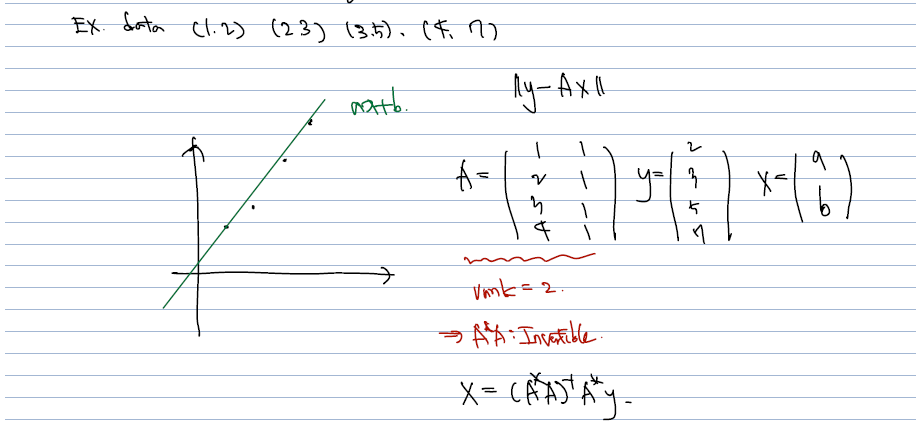 Ex. data (1.2) (2 3) (3.5), (4, 7)
ax+b.
‖y-Ax‖
A = ( 1 1 ; 2 1 ; 3 1 ; 4 1 ) y = ( 2 ; 3 ; 5 ; 7 ) x = ( a ; b )
rank = 2.
⇒ A*A : Invertible.
x = (A*A)⁻¹ A*y.